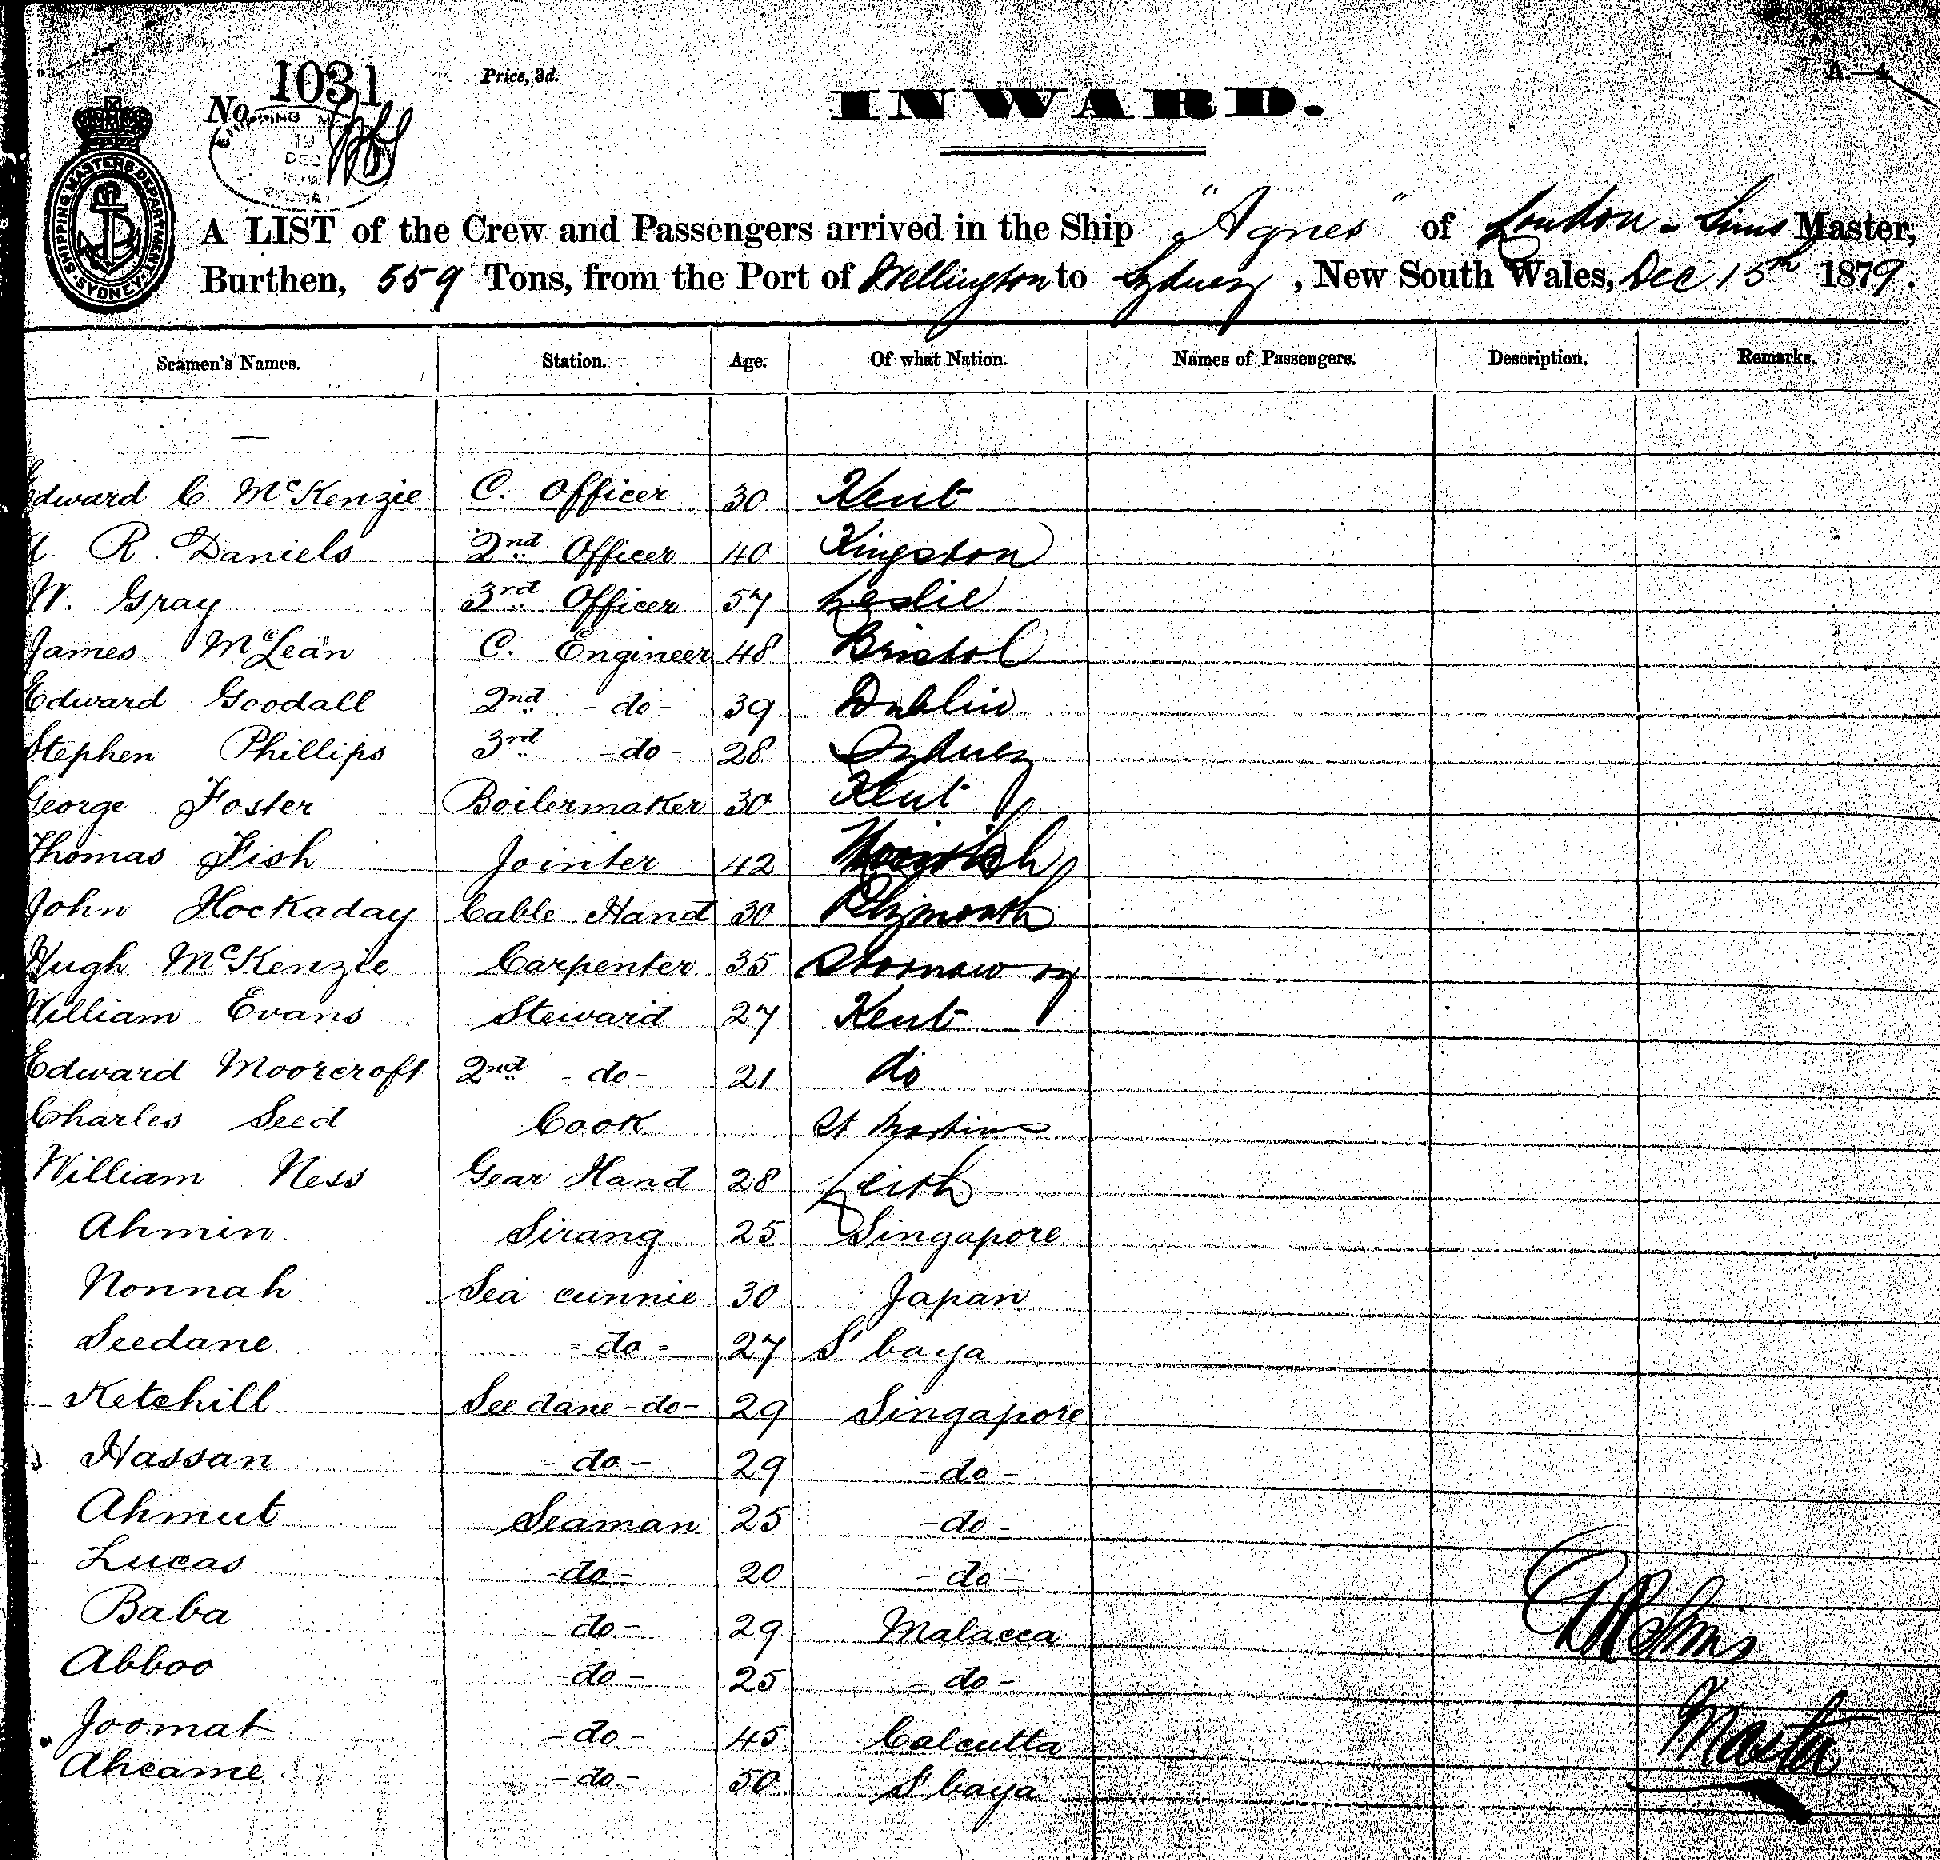 1031
Price, 3d.
No.
INWARD.
SHIPPING MASTERS DEPARTMENT SYDNEY
A LIST of the Crew and Passengers arrived in the Ship "Agnes" of London - Sims Master,
Burthen, 559 Tons, from the Port of Wellington to Sydney, New South Wales, Dec 15th 1879.
Seamen's Names. Station. Age. Of what Nation. Names of Passengers. Description. Remarks.
Edward C McKenzie C. Officer 30 Kent
R. Daniels 2nd Officer 40 Kingston
W. Gray 3rd Officer 57 Leslie
James McLean C. Engineer 48 Bristol
Edward Goodall 2nd - do - 39 Dublin
Stephen Phillips 3rd - do - 28 Sydney
George Foster Boilermaker 30 Kent
Thomas Fish Jointer 42
John Hockaday Cable Hand 30 Plymouth
Hugh McKenzie Carpenter 35 Stornoway
William Evans Steward 27 Kent
Edward Moorcroft 2nd - do - 21 do
Charles Seed Cook St Martins
William Ness Gear Hand 28 Leith
Ahmin Sirang 25 Singapore
Nonnah Sea cunnie 30 Japan
Seedane - do - 27 S' baya
Ketchill See dane - do - 29 Singapore
Hassan - do - 29 - do -
Ahmut Seaman 25 - do -
Lucas - do - 20 - do -
Baba - do - 29 Malacca
Abboo - do - 25 - do -
Joomat - do - 45 Calcutta
Aheame - do - 50 S' baya
Sims
Master